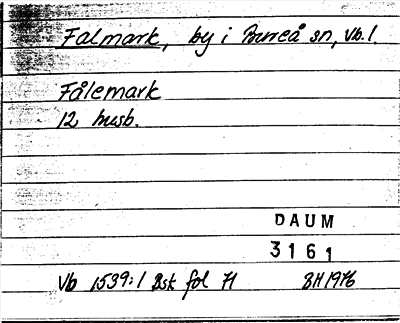 Falmark, by i Bureå sn, Vb.l.
Fålemark
12 husb.
DAUM
3161
Vb 1539:1 Bsk fol 71 BH 1976